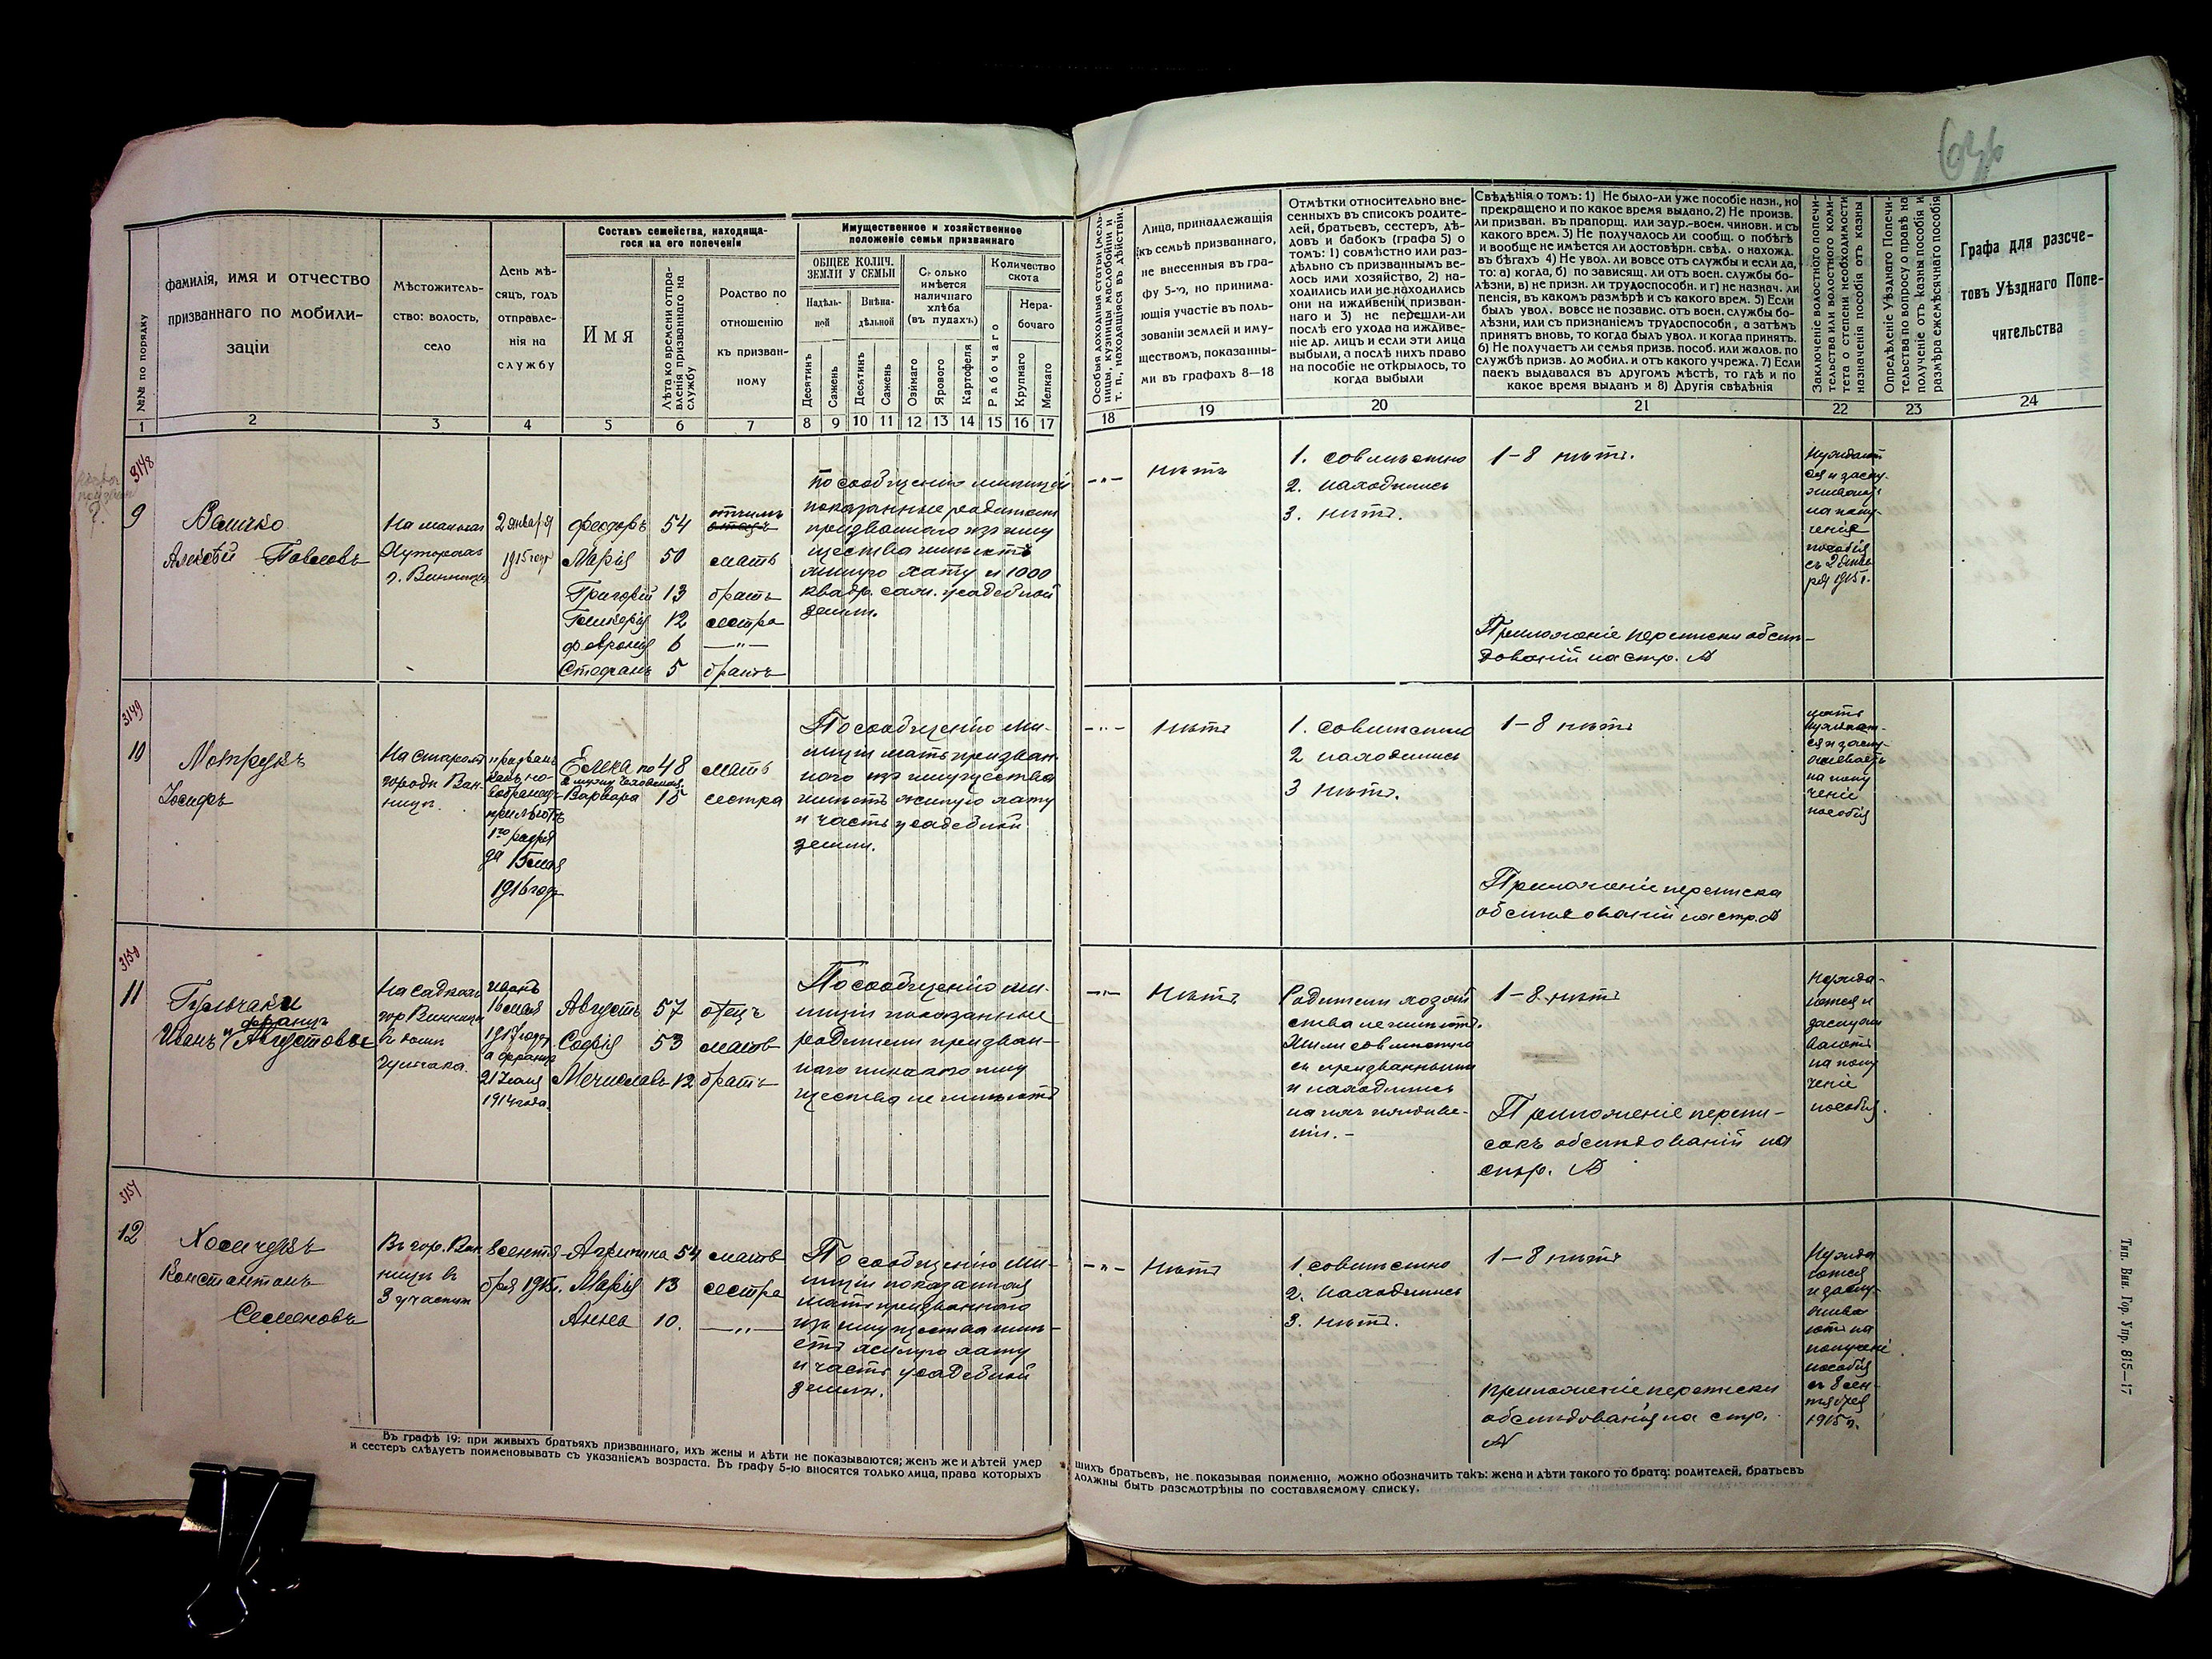 №№ по порядку
фамилія, имя и отчество
призваннаго по мобили-
заціи
Мѣстожитель-
ство: волость,
село
День мѣ-
сяцъ, годъ
отправле-
нія на
службу
Составъ семейства, находяща-
гося на его попеченіи
Имя
Лѣта ко времени отпра-
вленія призваннаго на
службу
Родство по
отношенію
къ призван-
ному
Имущественное и хозяйственное
положеніе семьи призваннаго
ОБЩЕЕ КОЛИЧ.
ЗЕМЛИ У СЕМЬИ
Надѣль-
ной
Внѣна-
дѣльной
Десятинъ
Сажень
Десятинъ
Сажень
Сколько
имѣется
наличнаго
хлѣба
(въ пудахъ)
Озимаго
Ярового
Картофеля
Количество
скота
Рабочаго
Нера-
бочаго
Крупнаго
Мелкаго
1 2 3 4 5 6 7 8 9 10 11 12 13 14 15 16 17
3148
9
Величко
Алексѣй Павловъ
г. Винницы
2 января
1915 года
Феодоръ 54 отчимъ
Марія 50 мать
Григорій 13 братъ
Гликерія 12 сестра
Февронія 6 —"—
Стефанъ 5 братъ
По сообщенію милиціи
показанные родители
призваннаго изъ иму
щества имѣютъ
жилую хату и 1000
квадр. саж. усадебной
земли.
3149
10
Мотрукъ
Іосифъ
На старомъ
городѣ Вин-
ницы.
1го разря
да 15 мая
1916 года
Елена по 48 мать
2 мужу
Варвара 15 сестра
По сообщенію ми-
лиціи мать призван
наго изъ имущества
имѣетъ жилую хату
и часть усадебной
земли.
3150
11
Гульчаки
Францъ
Иванъ и Августовы
На садкахъ
гор Винницы
въ домѣ
Гульчака.
Иванъ
16 мая
1917 года
а Францъ
21 Іюля
1914 года.
Августъ 57 отецъ
Софія 53 мать
Мечиславъ 12 братъ
По сообщенію ми-
лиціи показанные
родители призван-
наго никакого иму
щества не имѣютъ
3151
12
Хомчукъ
Константинъ
Семеновъ
Въ гор. Вин
ницѣ въ
3 участкѣ
8 сентя-
бря 1915г.
Агрипина 54 мать
Марія 13 сестра
Анна 10. —"—
По сообщенію ми-
лиціи показанная
мать призваннаго
изъ имущества имѣ-
етъ жилую хату
и часть усадебной
земли.
Въ графѣ 19: при живыхъ братьяхъ призваннаго, ихъ жены и дѣти не показываются; женъ же и дѣтей умер
и сестеръ слѣдуетъ поименовывать съ указаніемъ возраста. Въ графу 5-ю вносятся только лица, права которыхъ
Особыя доходныя статьи (мель-
ницы, кузницы маслобойни и
т. п., находящіяся въ дѣйствіи.
Лица, принадлежащія
къ семьѣ призваннаго,
не внесенныя въ гра-
фу 5-ю, но принима-
ющія участіе въ поль-
зованіи землей и иму-
ществомъ, показанны-
ми въ графахъ 8—18
Отмѣтки относительно вне-
сенныхъ въ списокъ родите-
лей, братьевъ, сестеръ, дѣ-
довъ и бабокъ (графа 5) о
томъ: 1) совмѣстно или раз-
дѣльно съ призваннымъ ве-
лось ими хозяйство, 2) на-
ходились или не находились
они на иждивеніи призван-
наго и 3) не перешли-ли
послѣ его ухода на иждиве-
ніе др. лицъ и если эти лица
выбыли, а послѣ нихъ право
на пособіе не открылось, то
когда выбыли
Свѣдѣнія о томъ: 1) Не было-ли уже пособіе назн., но
прекращено и по какое время выдано. 2) Не произв.
ли призван. въ прапорщ. или заур.-воен. чиновн. и съ
какого врем. 3) Не получалось ли сообщ. о побѣгѣ
и вообще не имѣется ли достовѣрн. свѣд. о нахожд.
въ бѣгахъ 4) Не увол. ли вовсе отъ службы и если да,
то: а) когда, б) по зависящ. ли отъ воен. службы бо-
лѣзни, в) не призн. ли трудоспособн. и г) не назнач. ли
пенсія, въ какомъ размѣрѣ и съ какого врем. 5) Если
былъ увол. вовсе не позавис. отъ воен. службы бо-
лѣзни, или съ признаніемъ трудоспособн, а затѣмъ
принятъ вновь, то когда былъ увол. и когда принятъ.
6) Не получаетъ ли семья призв. пособ. или жалов. по
службѣ призв. до мобил. и отъ какого учрежд. 7) Если
паекъ выдавался въ другомъ мѣстѣ, то гдѣ и по
какое время выданъ и 8) Другія свѣдѣнія
Заключеніе волостного попечи-
тельства или волостного коми-
тета о степени необходимости
назначенія пособія отъ казны
Опредѣленіе Уѣзднаго Попечи-
тельства по вопросу о правѣ на
полученіе отъ казны пособія и
размѣра ежемѣсячнаго пособія
Графа для разсче-
товъ Уѣзднаго Попе-
чительства
18 19 20 21 22 23 24
—"—
нѣтъ
1. совмѣстно
2. находились
3. нѣтъ.
1-8 нѣтъ.
Приложеніе переписки обслѣ-
дованій на стр. №
Нуждают
ся и заслу-
живаютъ
на полу-
ченіе
пособія
съ 2 янва
ря 1915 г.
—"—
Нѣтъ
1. совмѣстно
2 находились
3 нѣтъ.
1-8 нѣтъ
Приложеніе переписка
обслѣдованій на стр. №
мать
нуждает-
ся и заслу-
живаетъ
на полу
ченіе
пособія
—"—
Нѣтъ
Родители хозяй
ства не имѣютъ.
Жили совмѣстно
съ призванными
и находились
на ихъ иждиве-
ніи.-
1-8 нѣтъ
Приложеніе перепи-
сокъ обслѣдованій на
стр. №
Нужда-
ются и
заслужи
ваютъ
на полу
ченіе
пособія.
—"—
Нѣтъ
1. совмѣстно
2. находились
3. нѣтъ.
1-8 нѣтъ
приложеніе переписки
обслѣдованія на стр.
№
Нужда
ются
и заслу-
жива
ютъ на
полученіе
пособія
съ 8 сен-
тября
1915 г.
шихъ братьевъ, не показывая поименно, можно обозначить такъ: жена и дѣти такого то брата: родителей, братьевъ
должны быть разсмотрѣны по составляемому списку.
Тип. Вин. Гор. Упр. 815—17